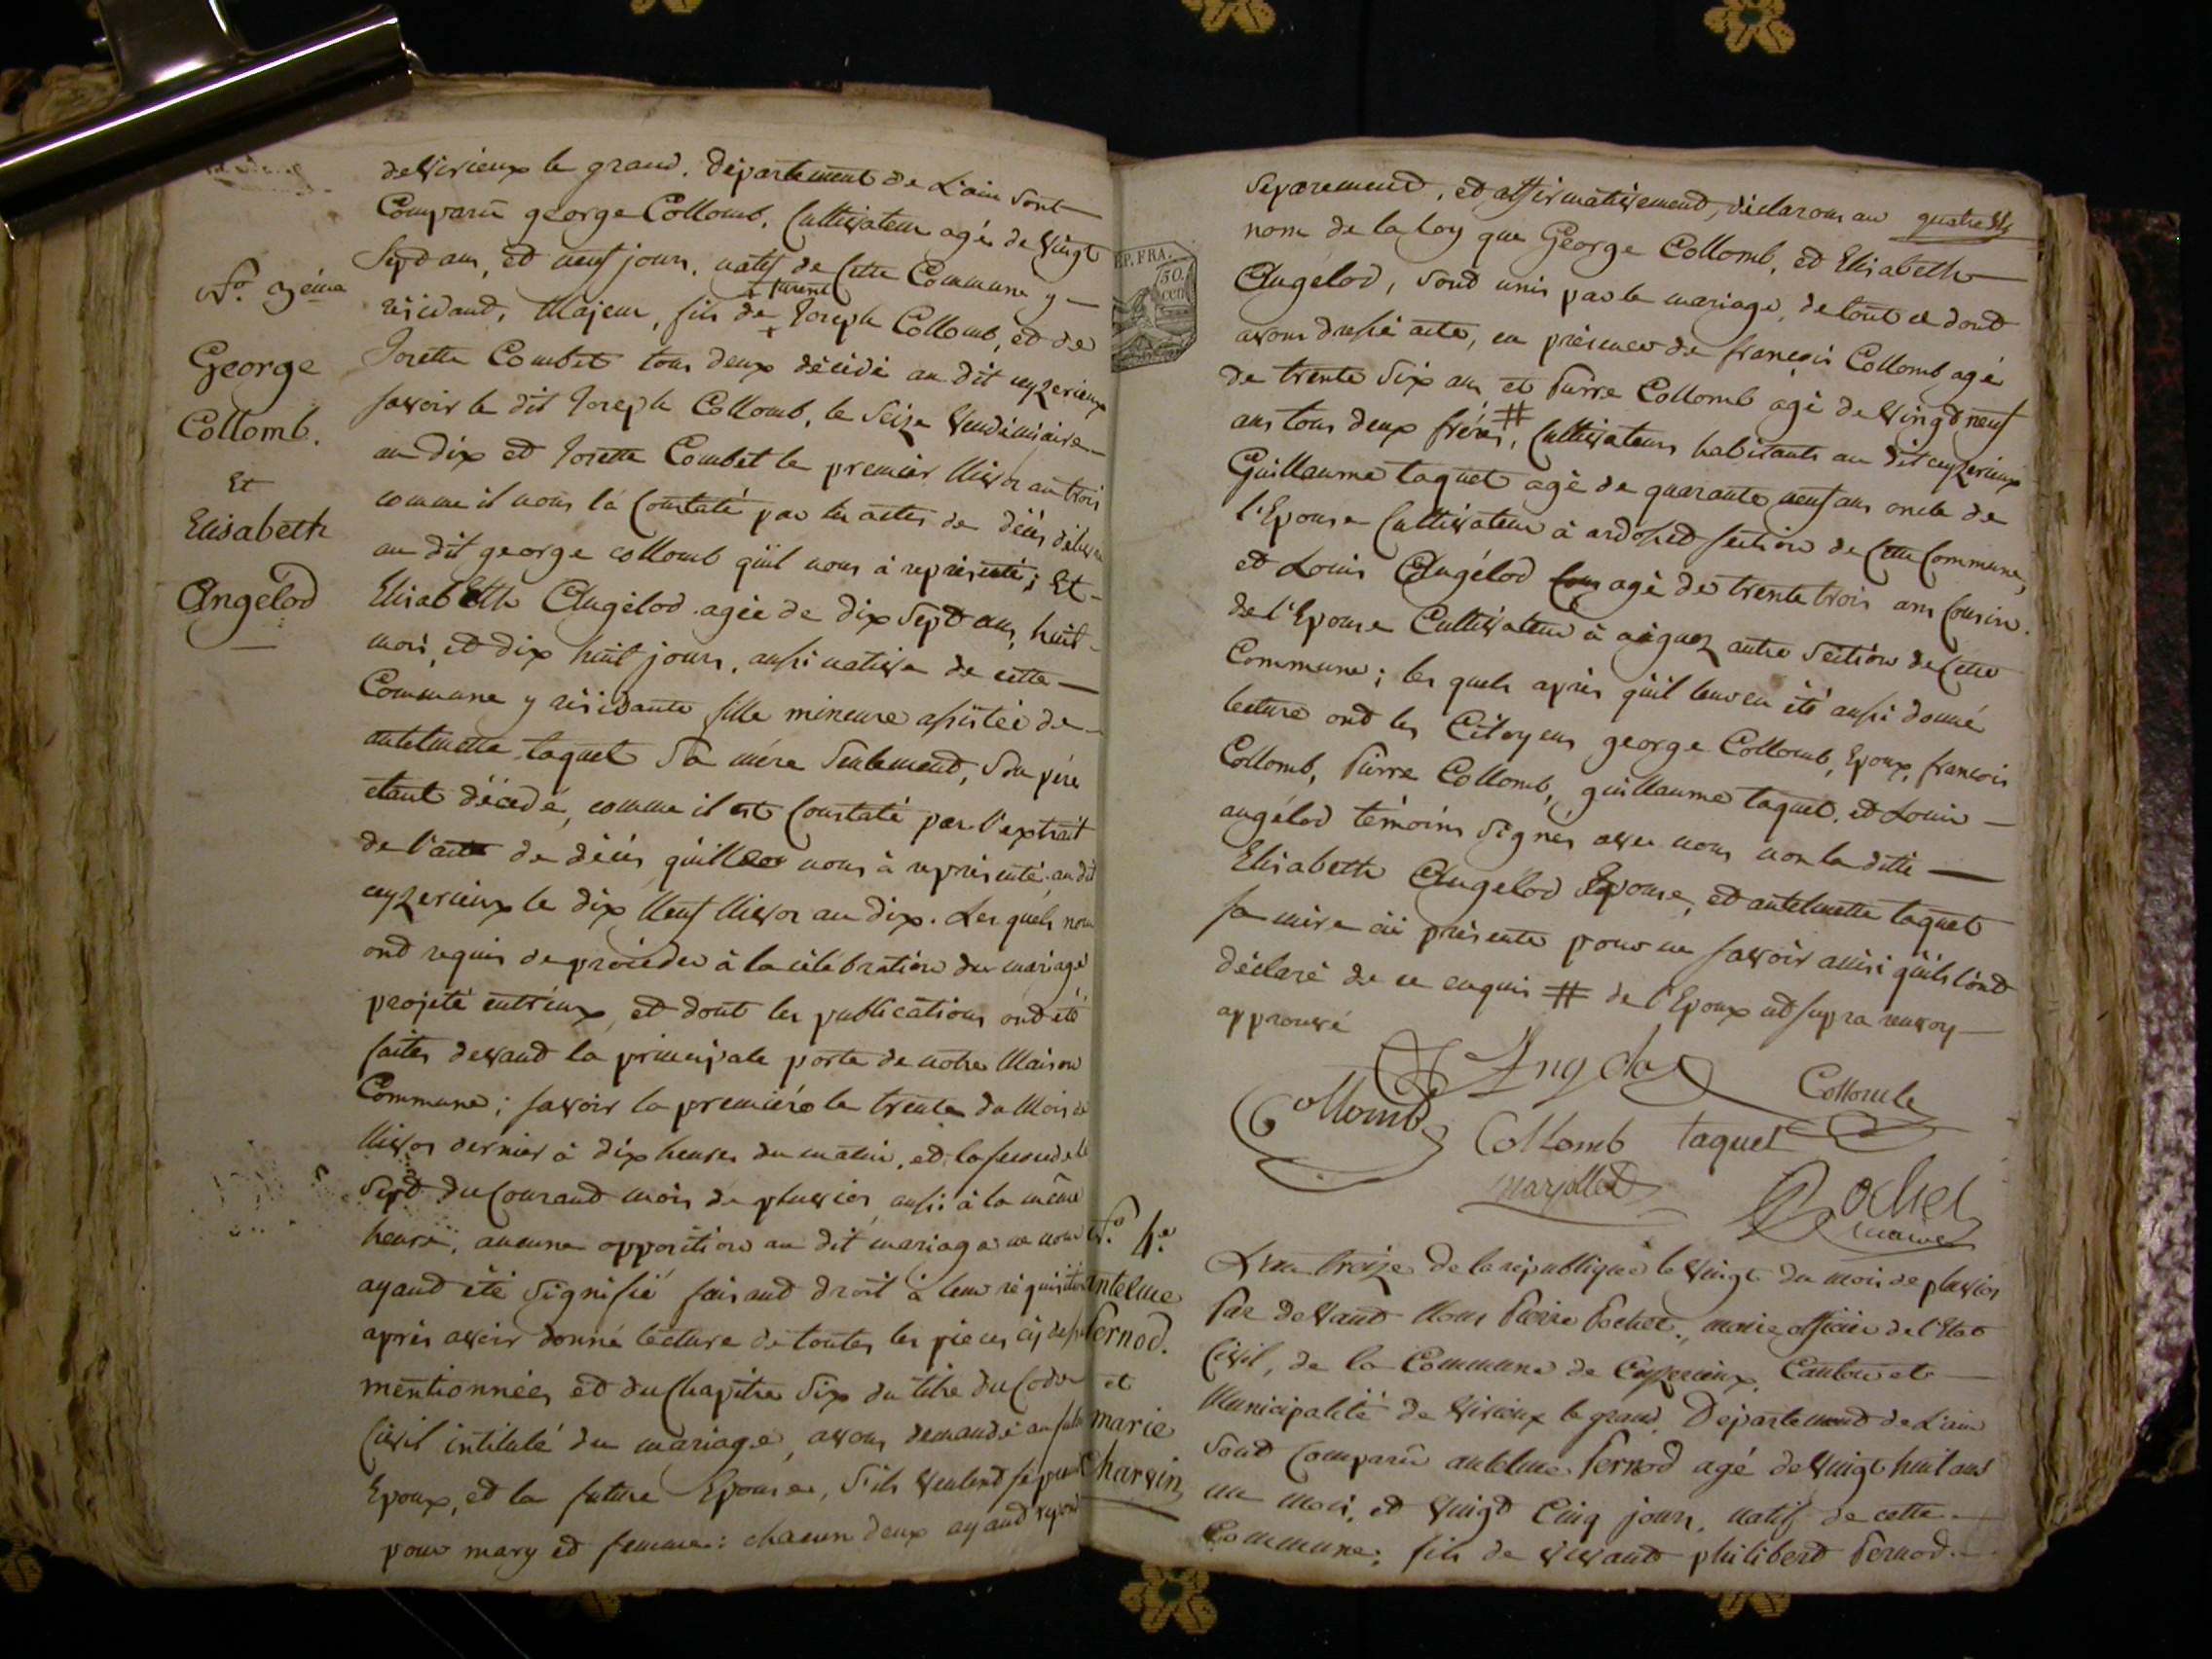 de virieux le grand. Département de L'ain sont
Comparû george Collomb, Cultivateur agé de vingt
Sept ans, et neuf jours, natif de Cette Commune y
résidant, Majeur, fils de Joseph Collomb, et de
Josette Combet tous deux décédé au dit ceyzerieux
savoir le dit Joseph Collomb, le Seize Vendémiaire
an dix et Josette Combet le premier Nivos an trois
comme il nous la Constaté par les actes de décés délivré
au dit george collomb qu'il nous à représenté; Et
Elisabeth Angélod agée de dix Sept ans, huit
mois, et dix huit jours, aussi native de cette
Commune y résidante fille mineure assistée de
antelmette taquet Sa mére Seulement, Son pére
étant décédé, comme il est Constaté par l'extrait
de l'acte de décés nous à représenté au dit
ceyzerieux le dix Neuf Nivos an dix. Les quels nous
ond requis de procéder à la célébration du mariage
projeté entr'eux, et dont les publications ond été
faites devand la principale porte de notre Maison
Commune; savoir la premiére le trente du Mois de
Nivos dernier à dix heures du matin, et la seconde le
Sept du Courand mois de pluvios aussi à la même
heure, aucune opposition au dit mariage ne nous
ayand été Signifié faisand droit à leur réquisition
aprés avoir donné lecture de toutes les pieces cy dessus
mentionnées et du Chapitre Six du titre du Code
Civil intitulé du mariage, avons demandé au futur
Epoux, et la future Epouse, S'ils veulend se prendre
pour mary et femme: chacun deux ayand répond
N.o 3éme
George
Collomb.
Et
Elisabeth
Angélod
quatre
Séparemend, et affirmativemend, déclarons au
nom de la loy que George Collomb, et Elisabeth
Angélod, Sond unis par le mariage, de tout ce dond
avons dressé acte, en présence de françois Collomb agé
de trente Six ans et Pierre Collomb agé de vingt neuf
ans tous deux fréres, # Cultivateurs habitants au dit ceyzerieux
Guillaume taquet agé de quarante neuf ans oncle de
l'Epouse Cultivateur à ardosset section de Cette Commune,
et Louis Angélod agé de trente trois ans Cousin
de l'Epouse Cultivateur à aignoz autre Section de Cette
Commune; les quels aprés qu'il leur en été aussi donné
lecture ond les Citoyens george Collomb, Epoux, francois
Collomb, Pierre Collomb, guillaume taquet, et Louis
angélod témoins Signés avec nous non la ditte
Elisabeth Angélod Epouse, et antelmette taquet
sa mére ici présente pour ne savoir ainsi qu'ils l'ond
déclaré de ce enquis # de l'Epoux ut supra renvoy
approuvé
Angelod
Collomb
Collomb
Collomb taquet
marjollet
Pochet
maire
N.o 4.e
antelme
Pernod.
et
marie
Charvin
L'an treize de la république le vingt du mois de pluvios
Par devand Nous Pierre Pochet, maire officier de l'Etat
Civil, de la Commune de Ceyzerieux, Canton et
Municipalité de Virieux le grand. Département de L'ain
Sond Comparû antelme Pernod agé de vingt huit ans
un mois, et vingt Cinq jours, natif de cette
Commune; fils de vivant philiberd Pernod
EP.FRA.
50.
cen